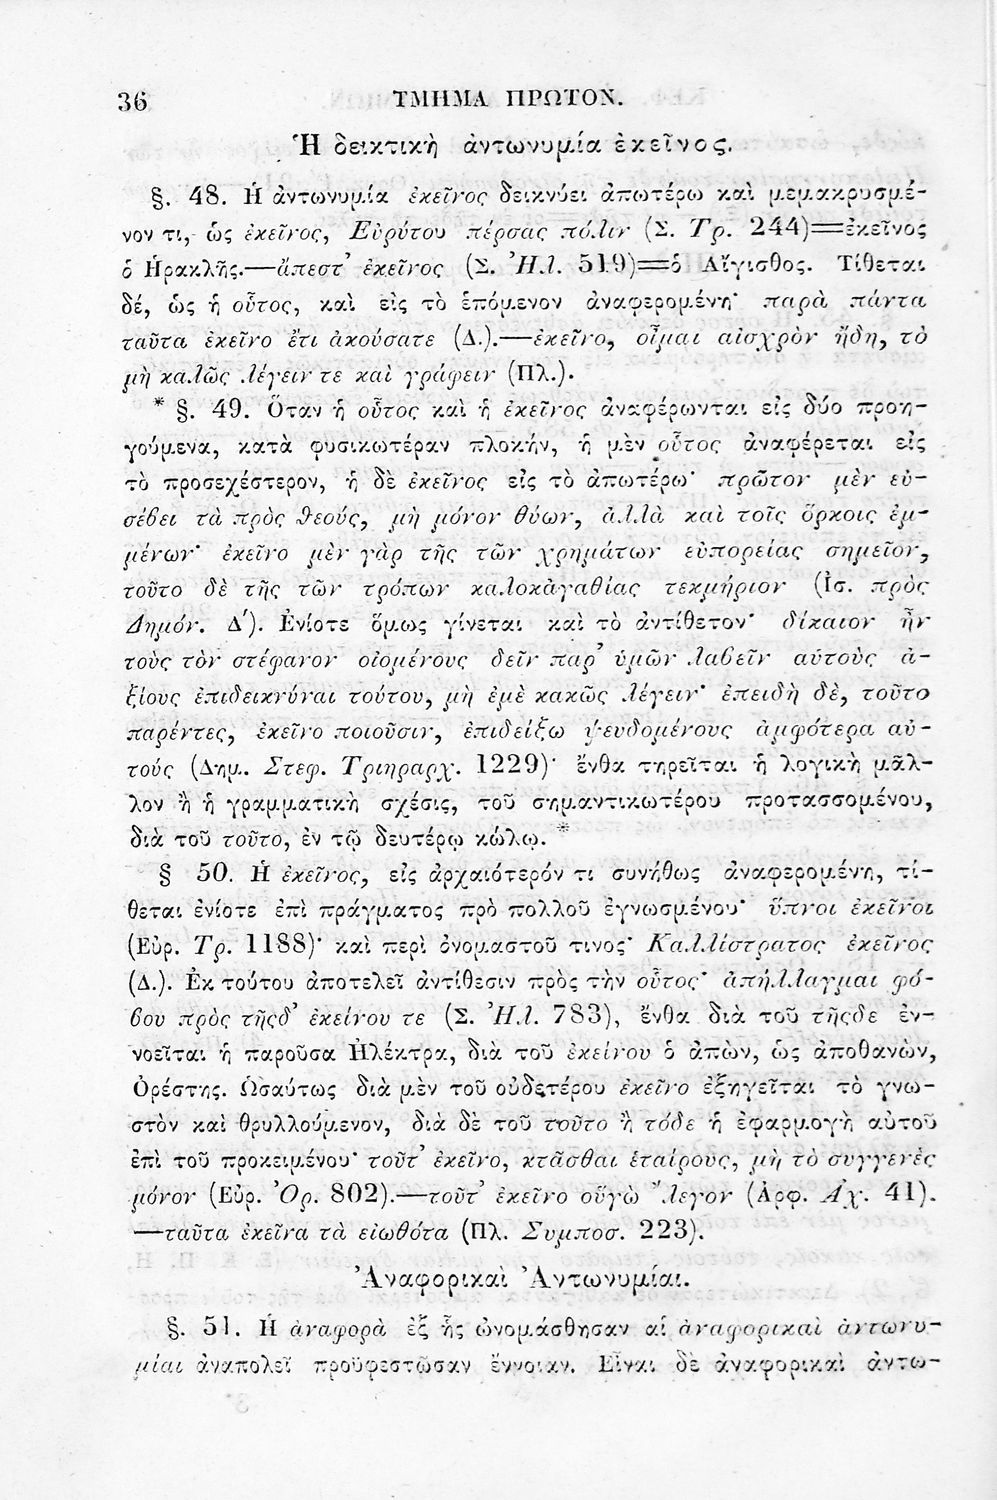 36 ΤΜΗΜΑ ΠΡΩΤΟΝ.
Ἡ δεικτικὴ ἀντωνυμία ἐκεῖνος.
§. 48. Ἡ ἀντωνυμία ἐκεῖνος δεικνύει ἀπωτέρω καὶ μεμακρυσμέ-
νον τι, ὡς ἐκεῖνος, Εὐρύτου πέρσας πόλιν (Σ. Τρ. 244)=ἐκεῖνος
ὁ Ἡρακλῆς.—ἄπεστ᾽ ἐκεῖνος (Σ. Ἠλ. 519)=ὁ Αἴγισθος. Τίθεται
δέ, ὡς ἡ οὗτος, καὶ εἰς τὸ ἑπόμενον ἀναφερομένη· παρὰ πάντα
ταῦτα ἐκεῖνο ἔτι ἀκούσατε (Δ.).—ἐκεῖνο, οἶμαι αἰσχρὸν ἤδη, τὸ
μὴ καλῶς λέγειν τε καὶ γράφειν (Πλ.).
* §. 49. Ὅταν ἡ οὗτος καὶ ἡ ἐκεῖνος ἀναφέρωνται εἰς δύο προη-
γούμενα, κατὰ φυσικωτέραν πλοκήν, ἡ μὲν οὗτος ἀναφέρεται εἰς
τὸ προσεχέστερον, ἡ δὲ ἐκεῖνος εἰς τὸ ἀπωτέρω· πρῶτον μὲν εὐ-
σέβει τὰ πρὸς θεούς, μὴ μόνον θύων, ἀλλὰ καὶ τοῖς ὅρκοις ἐμ-
μένων· ἐκεῖνο μὲν γὰρ τῆς τῶν χρημάτων εὐπορείας σημεῖον,
τοῦτο δὲ τῆς τῶν τρόπων καλοκἀγαθίας τεκμήριον (Ἰσ. πρὸς
Δημόν. Δ΄). Ἐνίοτε ὅμως γίνεται καὶ τὸ ἀντίθετον· δίκαιον ἦν
τοὺς τὸν στέφανον οἰομένους δεῖν παρ᾽ ὑμῶν λαβεῖν αὑτοὺς ἀ-
ξίους ἐπιδεικνύναι τούτου, μὴ ἐμὲ κακῶς λέγειν· ἐπειδὴ δέ, τοῦτο
παρέντες, ἐκεῖνο ποιοῦσιν, ἐπιδείξω ψευδομένους ἀμφότερα αὐ-
τούς (Δημ. Στεφ. Τριηραρχ. 1229)· ἔνθα τηρεῖται ἡ λογικὴ μᾶλ-
λον ἢ ἡ γραμματικὴ σχέσις, τοῦ σημαντικωτέρου προτασσομένου,
διὰ τοῦ τοῦτο, ἐν τῷ δευτέρῳ κώλῳ. *
§ 50. Ἡ ἐκεῖνος, εἰς ἀρχαιότερόν τι συνήθως ἀναφερομένη, τί-
θεται ἐνίοτε ἐπὶ πράγματος πρὸ πολλοῦ ἐγνωσμένου· ὕπνοι ἐκεῖνοι
(Εὐρ. Τρ. 1188)· καὶ περὶ ὀνομαστοῦ τινος· Καλλίστρατος ἐκεῖνος
(Δ.). Ἐκ τούτου ἀποτελεῖ ἀντίθεσιν πρὸς τὴν οὗτος· ἀπήλλαγμαι φό-
βου πρὸς τῆςδ᾽ ἐκείνου τε (Σ. Ἠλ. 783), ἔνθα διὰ τοῦ τῆςδε ἐν-
νοεῖται ἡ παροῦσα Ἠλέκτρα, διὰ τοῦ ἐκείνου ὁ ἀπών, ὡς ἀποθανών,
Ὀρέστης. Ὡσαύτως διὰ μὲν τοῦ οὐδετέρου ἐκεῖνο ἐξηγεῖται τὸ γνω-
στὸν καὶ θρυλλούμενον, διὰ δὲ τοῦ τοῦτο ἢ τόδε ἡ ἐφαρμογὴ αὐτοῦ
ἐπὶ τοῦ προκειμένου· τοῦτ᾽ ἐκεῖνο, κτᾶσθαι ἑταίρους, μὴ τὸ συγγενὲς
μόνον (Εὐρ. Ὀρ. 802).—τοῦτ᾽ ἐκεῖνο οὑγὼ ᾽λεγον (Ἀρφ. Ἀχ. 41).
—ταῦτα ἐκεῖνα τὰ εἰωθότα (Πλ. Συμποσ. 223).
Ἀναφορικαὶ Ἀντωνυμίαι.
§. 51. Ἡ ἀναφορὰ ἐξ ἧς ὠνομάσθησαν αἱ ἀναφορικαὶ ἀντωνυ-
μίαι ἀναπολεῖ προϋφεστῶσαν ἔννοιαν. Εἶναι δὲ ἀναφορικαὶ ἀντω-